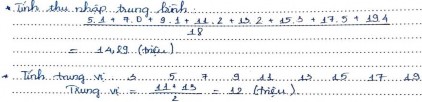 * Tính thu nhập trung bình
5.1 + 7.0 + 9.1 + 11.2 + 13.2 + 15.3 + 17.5 + 19.4
18
= 14,89 (triệu)
* Tính trung vị 3 5 7 9 11 13 15 17 19
Trung vị = 11 + 13 / 2 = 12 (triệu)